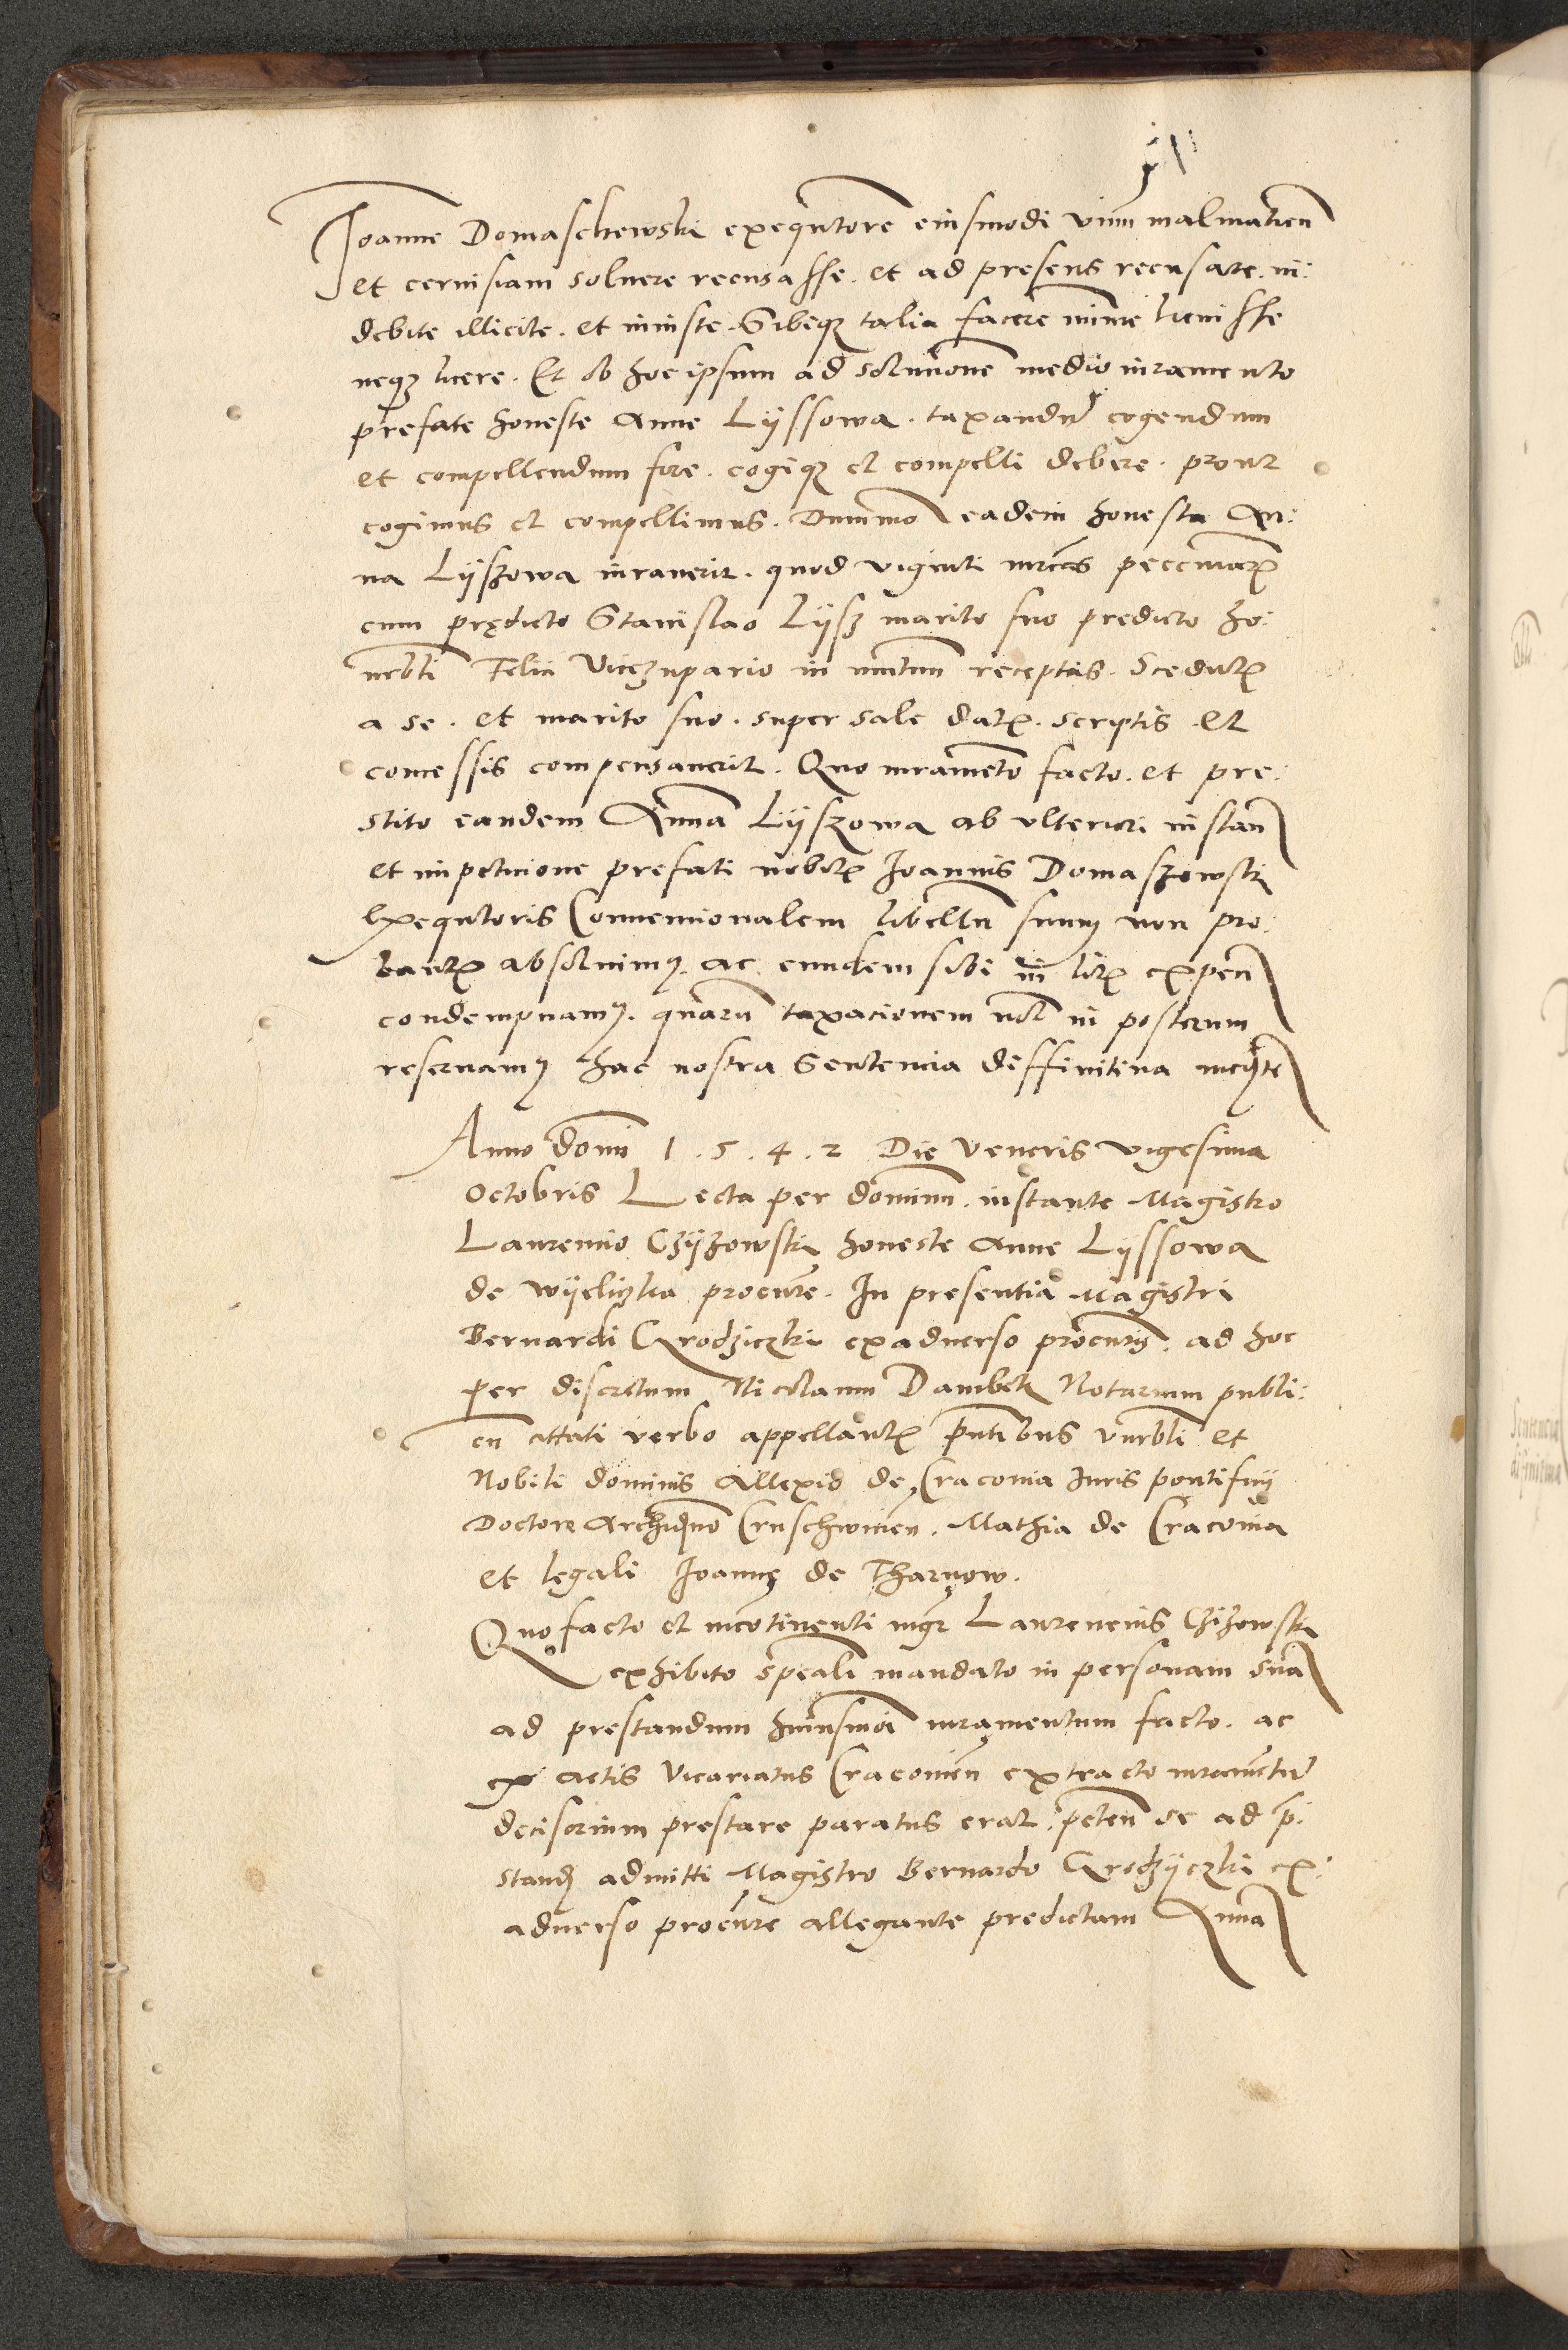 Joanne Domaschewski exequutore eiusmodi vinu malmaticu
et ceruisiam soluere recusasse. et ad presens recusare. in:
debite illicite. et iniuste. Sibiq; talia facere minime licuisse
neq; licere. Et ob hoc ipsum ad solucione medio iuramento
prefate honeste Anne Lyssowa. taxandu cogendum
et compellendum fore. cogiq; et compelli debere. prout
cogimus et compellimus. Dummo eadem honesta An:
na Lyszowa iurauerit. quod viginti mrcas peccuniar
cum prędicto Stanislao Lysz marito suo predicto ho:
nebli Felici Vicezupario in mutuum receptas. Scedulis
a se. et marito suo. super sale datis. scriptis et
concessis compensauerit. Quo iuramento facto. et pre:
stito eandem Anna Lyszowa ab vlteriori instan
et impeticione prefati nobilis Joannis Domaszowsky
Exequtoris Conuencionalem libellu suum non pro:
bantis absoluimus. ac eundem sibi in litis expen
condempnamus. quaru taxacionem nob in posterum
reseruamus hac nostra Sentencia diffinitiua mediate
Anno domi 1.5.4.2 Die Veneris vigesima
Octobris Lecta per dominum. instante Magistro
Laurencio Czyzowsky honeste Anne Lyssowa
de Wyeliczka procure. In presentia Magistri
Bernardi Grodziczki exaduerso procuris. ad hoc
per discretum Nicolaum Dambek Notarium publi:
cu attati verbo appellantis pntibus vnrbli et
Nobili dominis Allexio de Cracouia Juris pontificij
Doctore Archidno Cruschwicien. Mathia de Cracouia
et legali Joanne de Tharnow.
Quo facto et incotinenti mgr Laurencius Czizowsky
exhibito speali mandato in personam sua
ad prestandum huiusmoi iuramentum facto. ac
ex actis Vicariatus Cracouien extracto iuramentu
decisorium prestare paratus erat. peten se ad p:
stand admitti Magistro Bernardo Grodzyczki ex:
aduerso procure allegante predictam Anna